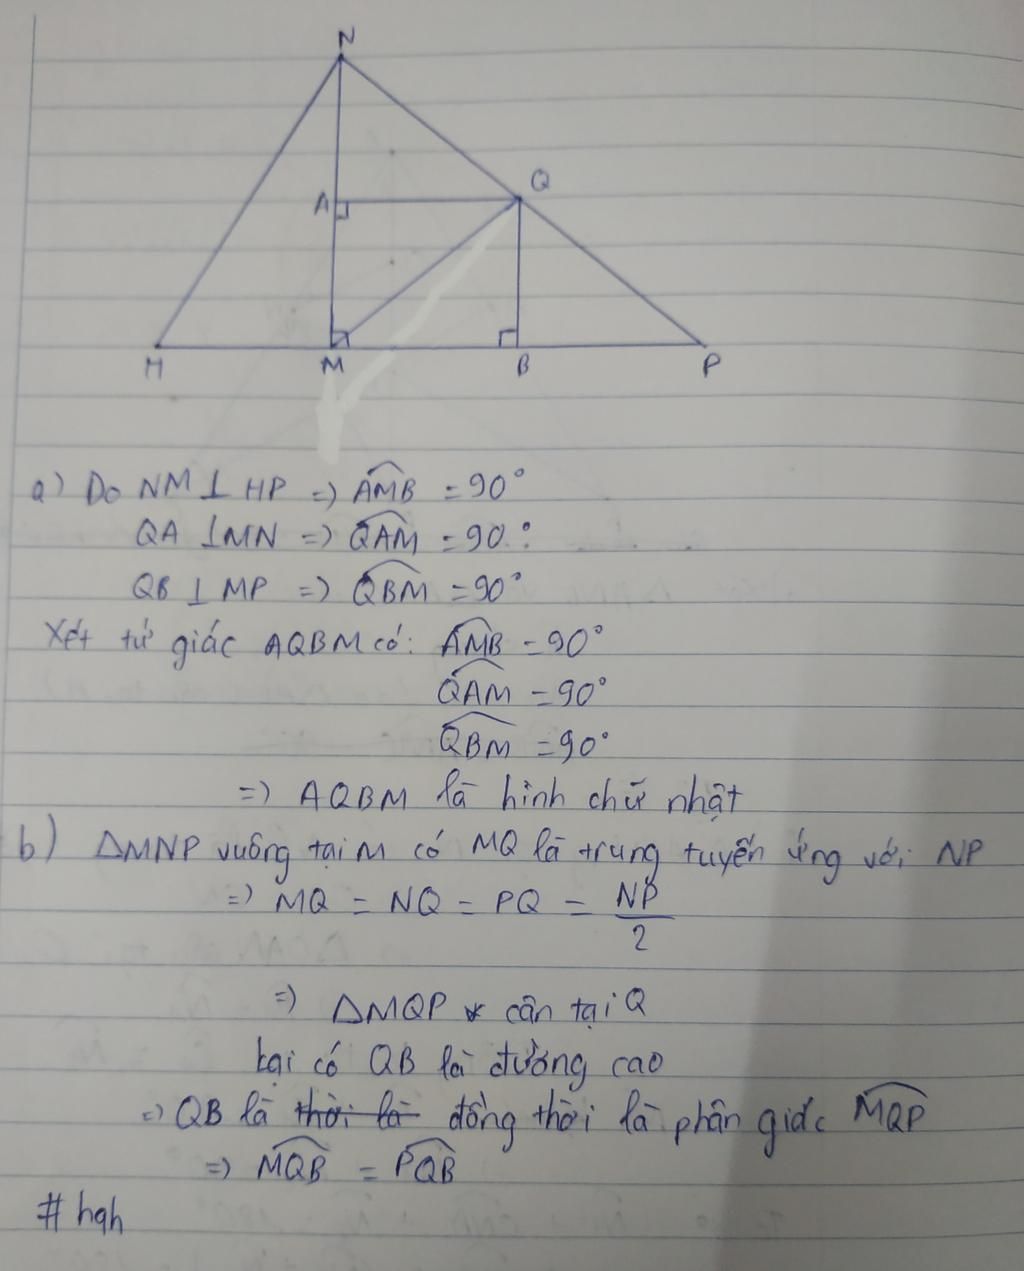 N
A
Q
H
M
B
P
a) Do NM ⊥ HP => \widehat{AMB} = 90°
QA ⊥ MN => \widehat{QAM} = 90°
QB ⊥ MP => \widehat{QBM} = 90°
Xét tứ giác AQBM có: \widehat{AMB} = 90°
\widehat{QAM} = 90°
\widehat{QBM} = 90°
=> AQBM là hình chữ nhật
b) ΔMNP vuông tại M có MQ là trung tuyến ứng với NP
=> MQ = NQ = PQ = \frac{NP}{2}
=> ΔMQP cân tại Q
Lại có QB là đường cao
=> QB là thời là đồng thời là phân giác \widehat{MQP}
=> \widehat{MQB} = \widehat{PQB}
# hqh